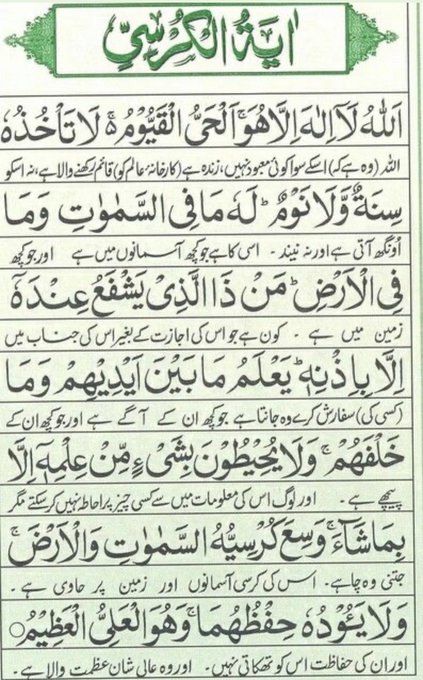 اٰیَةُ الْکُرْسِیِّ
اَللّٰهُ لَاۤ اِلٰهَ اِلَّا هُوَۚ اَلْحَیُّ الْقَیُّوْمُ ۚ۬ لَا تَاْخُذُهٗ
اللہ (وہ ہے کہ) اسکے سوا کوئی معبود نہیں، زندہ ہے (کارخانۂ عالم کو) قائم رکھنے والا ہے، نہ اسکو
سِنَةٌ وَّلَا نَوْمٌ ؕ لَهٗ مَا فِی السَّمٰوٰتِ وَمَا
اُونگھ آتی ہے اور نہ نیند ۔ اسی کا ہے جو کچھ آسمانوں میں ہے اور جو کچھ
فِی الْاَرْضِ ؕ مَنْ ذَا الَّذِیْ یَشْفَعُ عِنْدَهٗۤ
زمین میں ہے ۔ کون ہے جو اس کی اجازت کے بغیر اس کی جناب میں
اِلَّا بِاِذْنِهٖ ؕ یَعْلَمُ مَا بَیْنَ اَیْدِیْهِمْ وَمَا
(کسی کی) سفارش کرے وہ جانتا ہے جو کچھ ان کے آگے ہے اور جو کچھ ان کے
خَلْفَهُمْ ۚ وَلَا یُحِیْطُوْنَ بِشَیْءٍ مِّنْ عِلْمِهٖۤ اِلَّا
پیچھے ہے ۔ اور لوگ اس کی معلومات میں سے کسی چیز پر احاطہ نہیں کر سکتے مگر
بِمَا شَآءَ ۚ وَسِعَ کُرْسِیُّهُ السَّمٰوٰتِ وَالْاَرْضَ ۚ
جتنی وہ چاہے ۔ اس کی کرسی آسمانوں اور زمین پر حاوی ہے ۔
وَلَا یَـُٔوْدُهٗ حِفْظُهُمَا ۚ وَهُوَ الْعَلِیُّ الْعَظِیْمُ
اور ان کی حفاظت اس کو تھکاتی نہیں ۔ اور وہ عالی شان عظمت والا ہے ۔